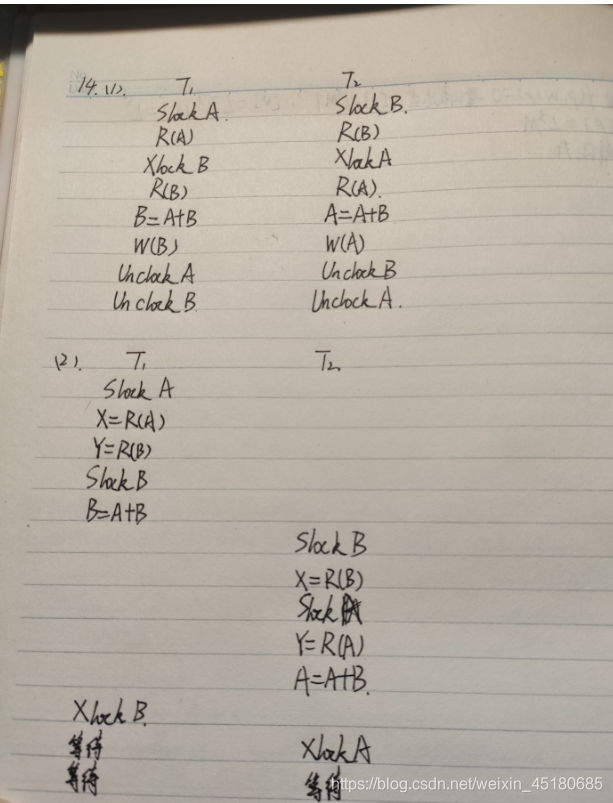 14.(1). T1 T2
Slock A. Slock B.
R(A) R(B)
Xlock B Xlock A
R(B) R(A).
B=A+B A=A+B
W(B) W(A)
Unclock A Unclock B
Unclock B Unclock A.
(2). T1 T2
Slock A
X=R(A)
Y=R(B)
Slock B
B=A+B
Slock B
X=R(B)
Slock A
Y=R(A)
A=A+B.
Xlock B.
等待 Xlock A
等待 等待
https://blog.csdn.net/weixin_45180685